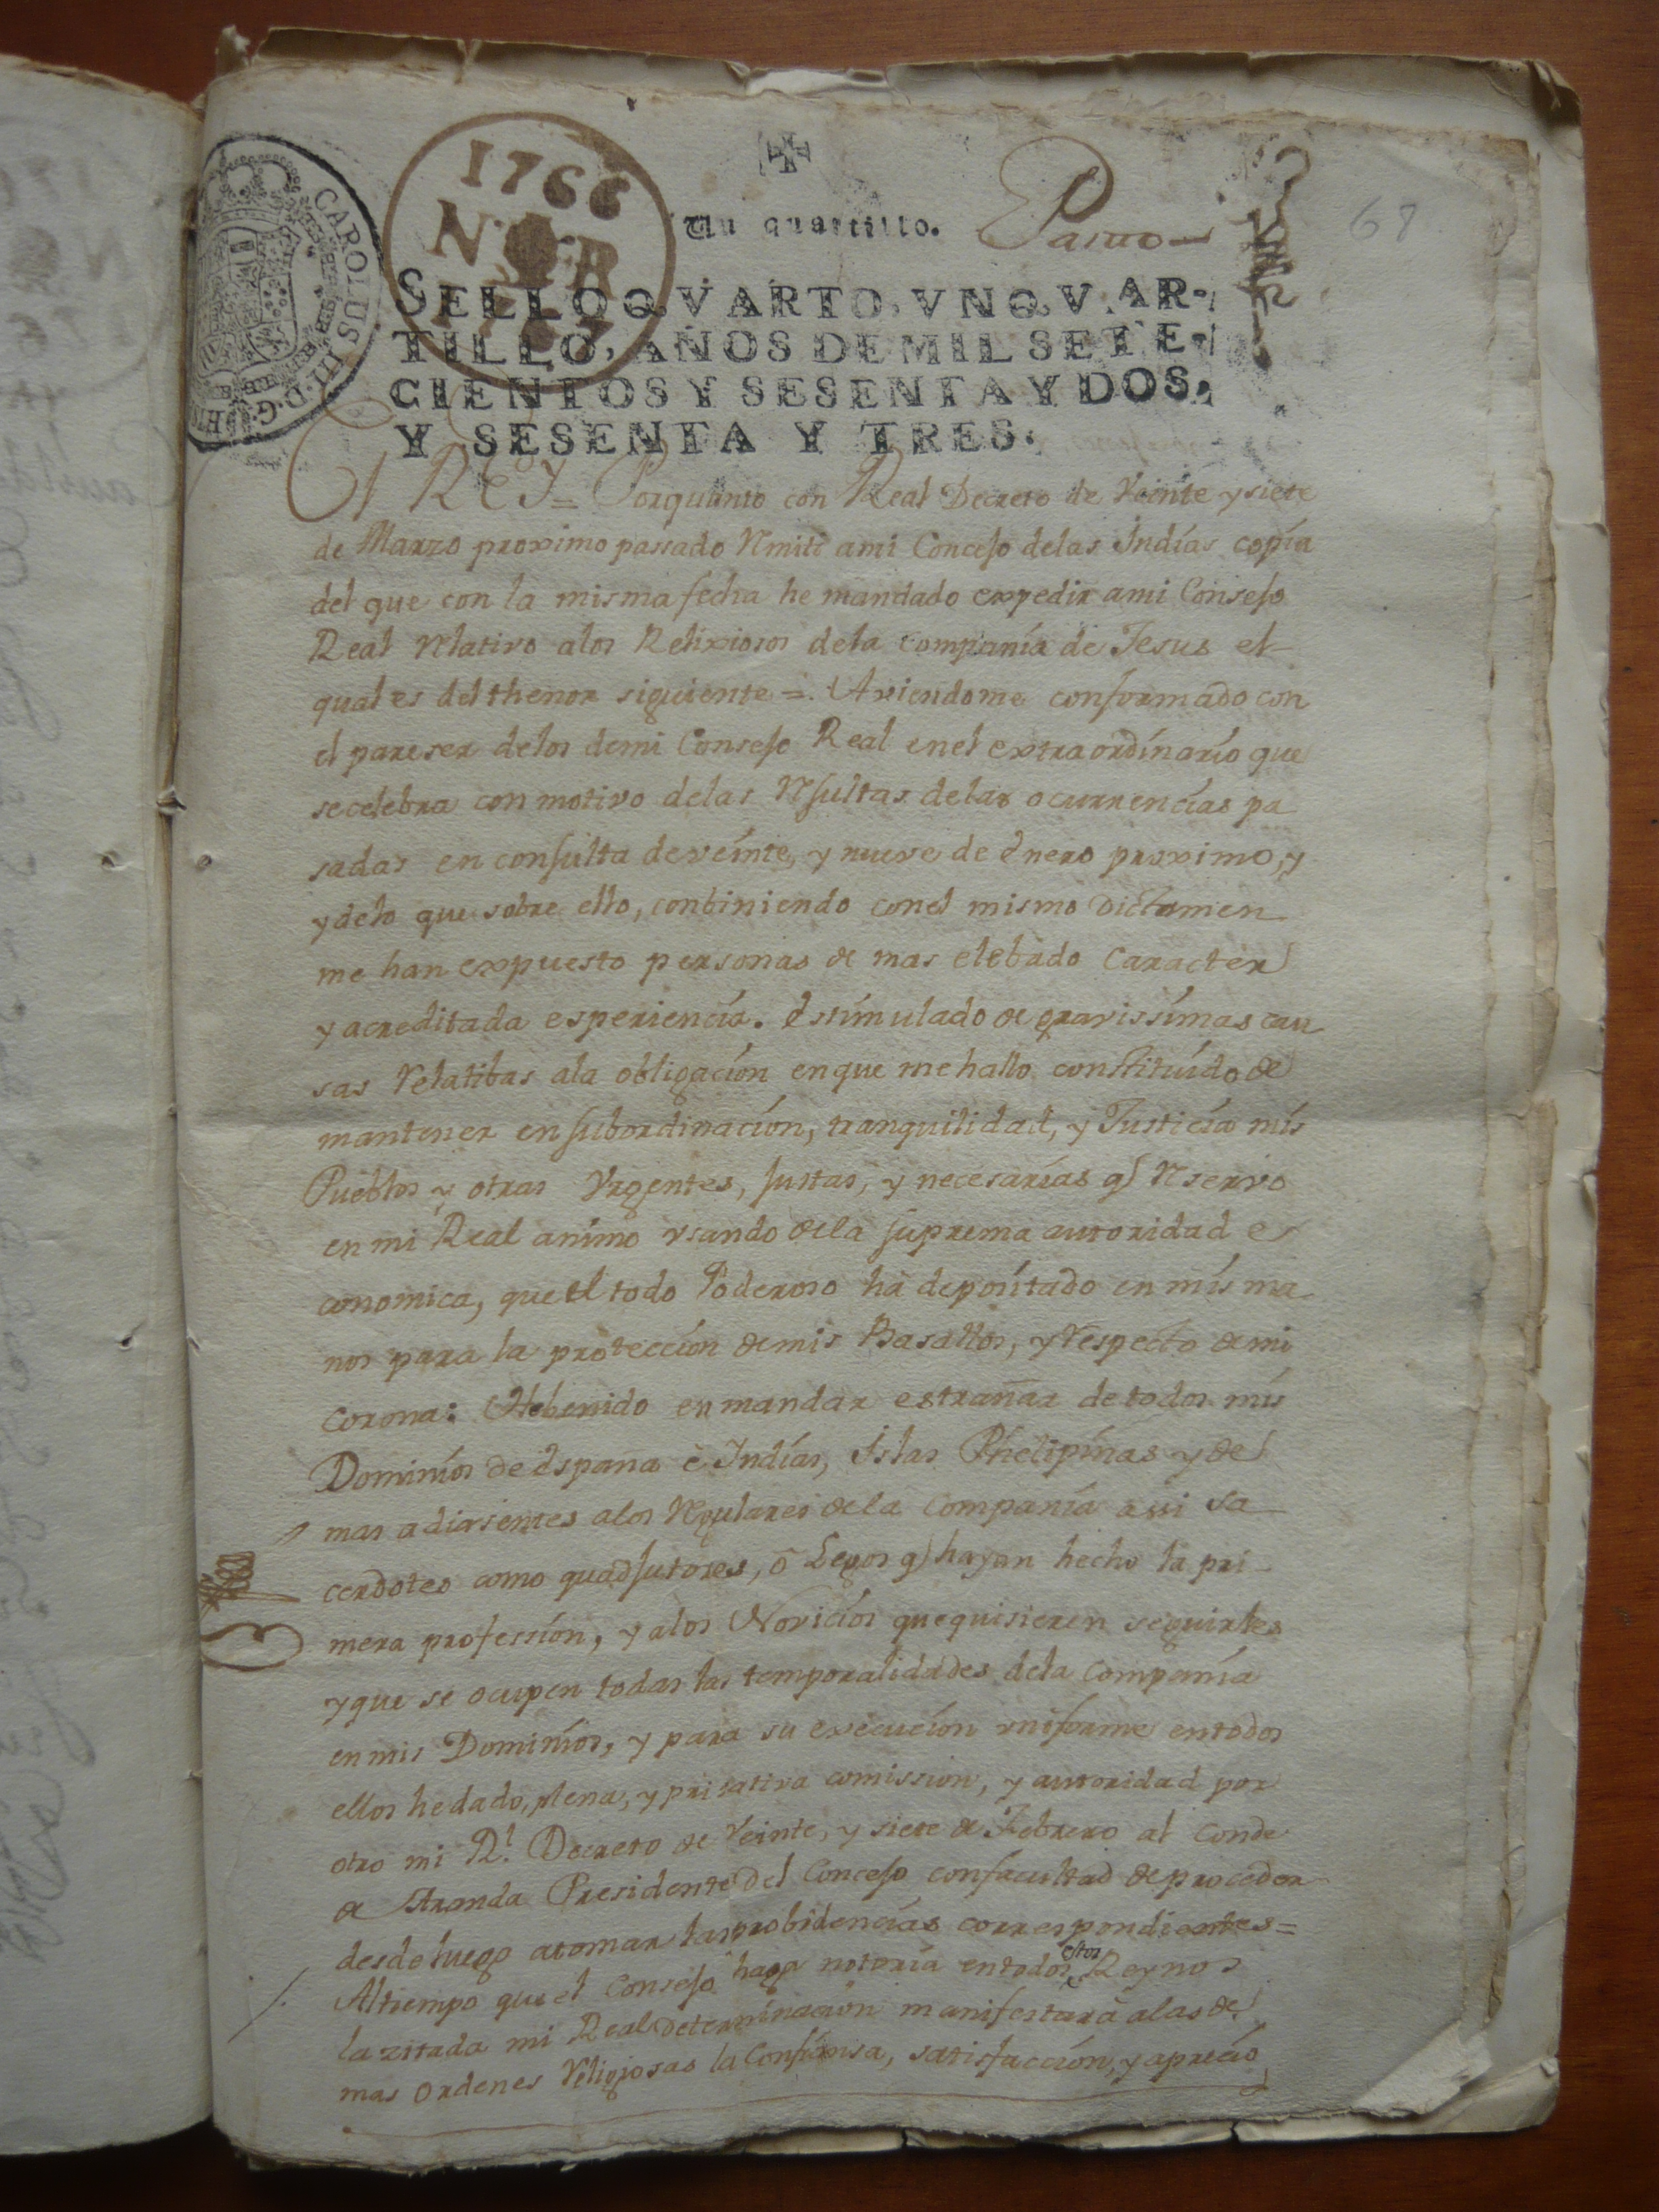 1766
Un quartillo.
Pasto
67
CAROLUS III. D. G.
SELLO QVARTO, VN QVAR-
TILLO, AÑOS DE MIL SETE-
CIENTOS Y SESENTA Y DOS,
Y SESENTA Y TRES.
El Rey = Porquanto con Real Decreto de Veinte y siete
de Marzo proximo passado Rmiti ami Concejo delas Indias copia
del que con la misma fecha he mandado expedir ami Consejo
Real Rlativo alos Relixiosos dela compania de Jesus el
qual es del thenor siguiente =. Aviendome conformado con
el pareser delos demi Consejo Real enel extraordinario que
secelebra con motivo delas Rsultas delas ocurrencias pa
sadas en consulta deveinte, y nueve de Enero proximo, y
y delo que sobre ello, conbiniendo conel mismo Dictamen
me han expuesto personas de mas elebado Caracter
y acreditada esperiencia. Estimulado de gravissimas cau
sas Relatibas ala obligacion enque me hallo constituido de
mantener en subordinacion, tranquilidad, y Justicia mis
Pueblos y otras Vrgentes, justas, y necesarias q Rservo
en mi Real animo vsando dela suprema autoridad e
conomica, que el todo Poderoso ha depositado en mis ma
nos para la proteccion demis Basallos, y Respecto demi
corona: He benido en mandar estrañar de todos mis
Dominios de España è Indias, Islas Phelipinas y de
mas adiasentes alos Rgulares dela Compania assi sa
cerdotes como quadjutores, ó Legos q hayan hecho la pri
mera profession, y alos Novicios que quisieren seguirles
y que se ocupen todas las temporalidades dela Compania
en mis Dominios, y para su execucion vniforme entodos
ellos hedado, plena, y privativa comission, y autoridad por
otro mi Rl. Decreto de Veinte, y siete de Febrero al Conde
de Aranda Presidente Del Concejo confacultad de proceder
desde luego atomar las probidencias correspondientes =
Altiempo que el Consejo haga notoria entodos estos Reynos
la zitada mi Real Determinacion manifestara alas de
mas Ordenes Religiosas la Confiansa, satisfaccion, y aprecio